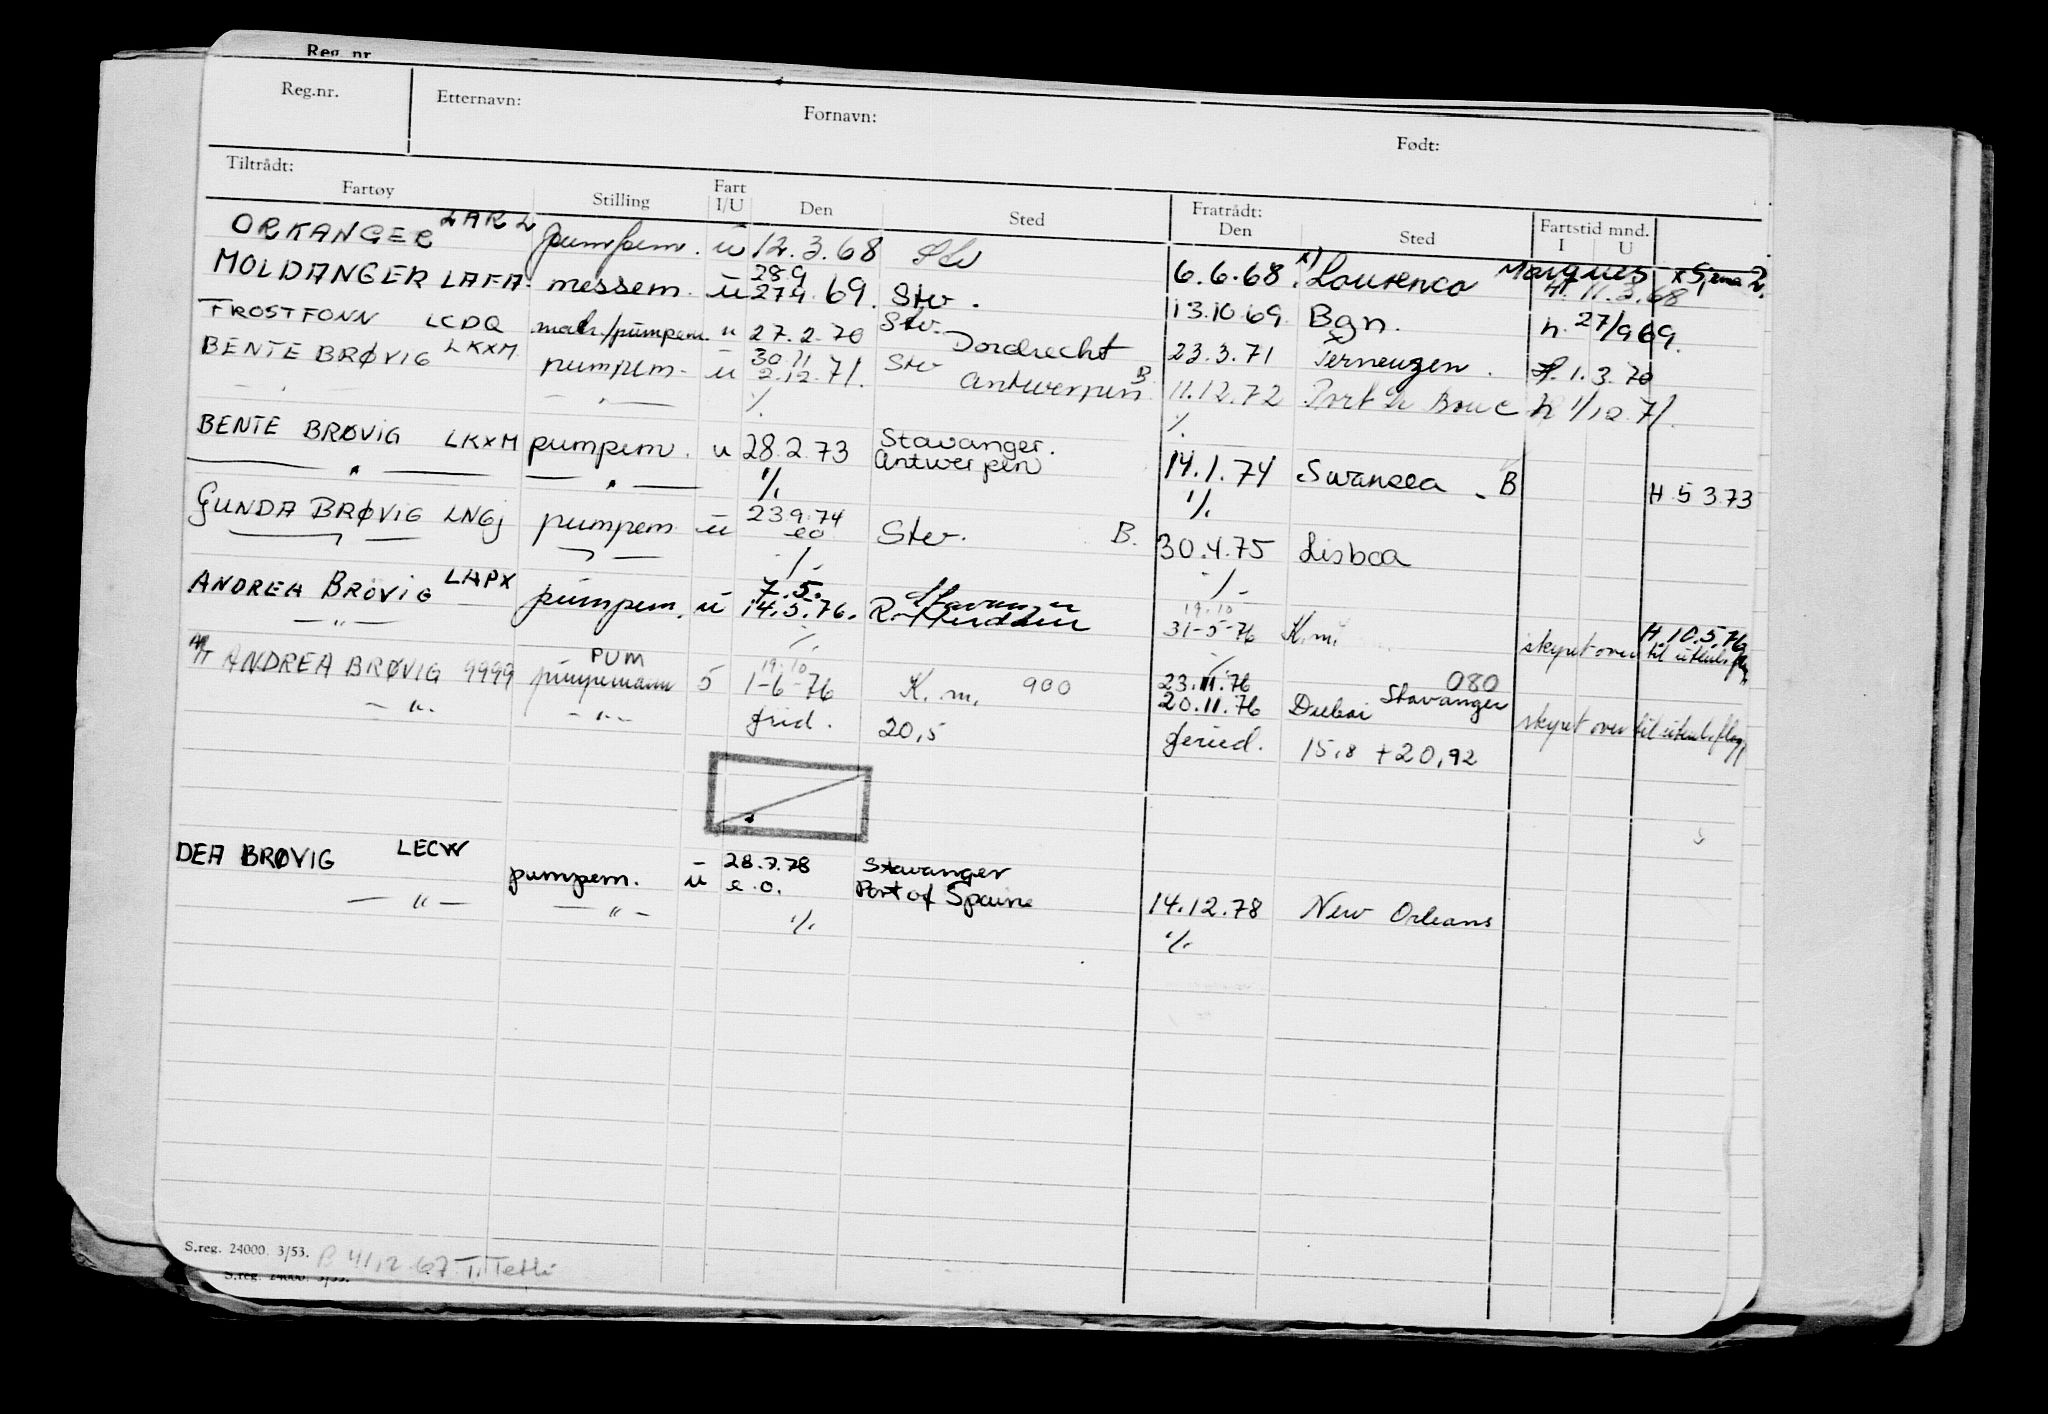 Reg. nr
Reg.nr. Etternavn: Fornavn: Født:
Tiltrådt: Fratrådt:
Fartøy Stilling Fart I/U Den Sted Den Sted Fartstid mnd. I U
ORKANGER LARL pumpem. u 12.3.68 Stv 6.6.68 x) Lourenco Marques x 5, 2.
H. 11.3.68
MOLDANGER LAFA messem. u 28.9 27.9.69. Stv. 13.10.69 Bgn. h. 27/9 69.
FROSTFONN LCDQ matr./pumpem. u 27.2.70 Stv. Dordrecht 23.3.71 Terneuzen. H. 1.3.70
BENTE BRØVIG LKXM pumpem. u 30.11 2.12.71. Stv Antwerpen B. 11.12.72 Port de Bouc h 1/12.71.
— " — — " — ·/. ·/.
BENTE BRØVIG LKXM pumpem. u 28.2.73 Stavanger. Antwerpen 14.1.74 Swansea - B H 5 3.73
— " — — " — ·/. ·/.
GUNDA BRØVIG LNGJ pumpem u 23.9.74 eo Stv. B. 30.4.75 Lisboa
— " — — " — ·/. ·/.
ANDREA BRØVIG LAPX pumpem. u 7.5. 14.5.76. Stavanger Rotterdam 19.10 31-5-76 K.m. skyret over til utenl. flg. H. 10.5.76
— " — ·/. ·/.
M/T ANDREA BRØVIG 9999 PUM pumpemann 5 19.10 1-6-76 K.m. 900 23.11.76 20.11.76 Dubai Stavanger 080 skyret over til utenl. flagg
— " — — " — frid. 20,5 feried. 15,8 + 20,92
DEA BRØVIG LECW pumpem. u 28.7.78 e.o. Stavanger Port of Spain 14.12.78 New Orleans
— " — — " — ·/. ·/.
S.reg. 24000. 3/53. B 4/12-67 T. Tetli
S.reg. 24000. 3/53.